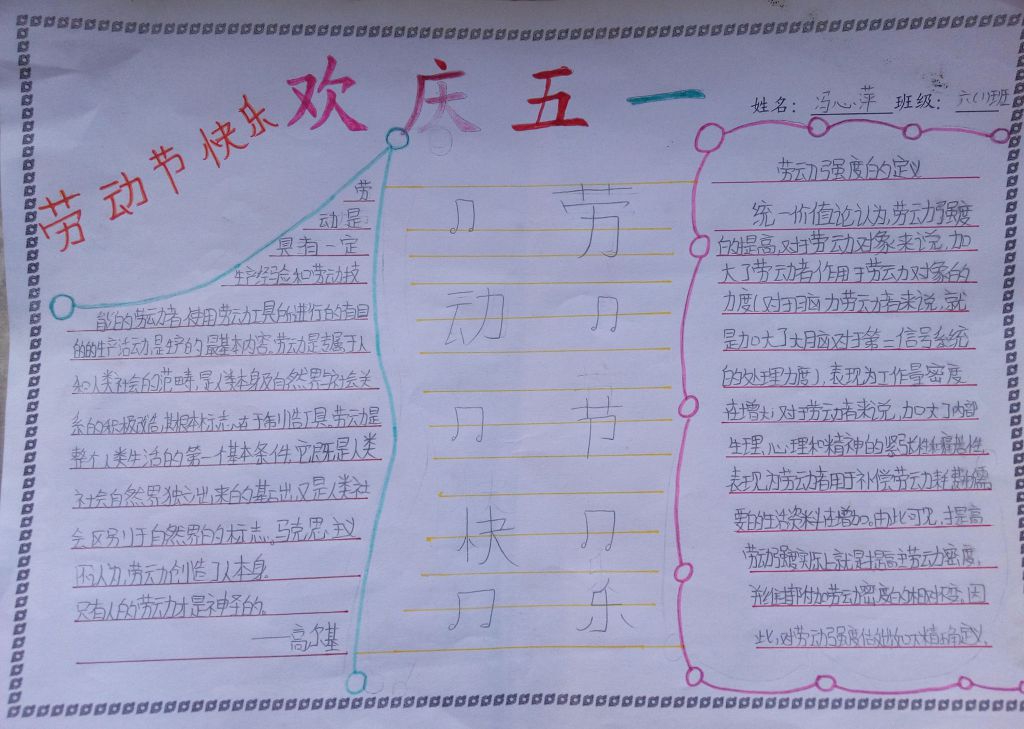 欢庆五一
劳动节快乐
姓名：冯心萍 班级：六(1)班
劳
动是
具有一定
生产经验和劳动技
能的劳动者使用劳动工具所进行的有目
的的生产活动,是生产的最基本内容。劳动是专属于人
和人类社会的范畴,是人类本身及自然界与社会关
系的积极改造,其根本标志在于制造工具。劳动是
整个人类生活的第一个基本条件,它既是人类
社会自然界独立出来的基出,又是人类社
会区别于自然界的标志。马克思主义
认为,劳动创造了人本身。
只有人的劳动才是神圣的。
——高尔基
劳
动
节
快
乐
劳动强度的定义
统一价值论认为,劳动强度
的提高,对于劳动对象来说,加
大了劳动者作用于劳动对象的
力度(对于脑力劳动者来说,就
是加大了大脑对于第二信号系统
的处理力度),表现为工作量密度
在增大;对于劳动者来说,加大了内部
生理、心理和精神的紧张性和
表现为劳动者用于补偿劳动耗
要的生活资料在增加。由此可见,提高
劳动强度实际上就是提高劳动密度,
劳动密度的相对不变。因
此,对劳动强度做如下精确定义。